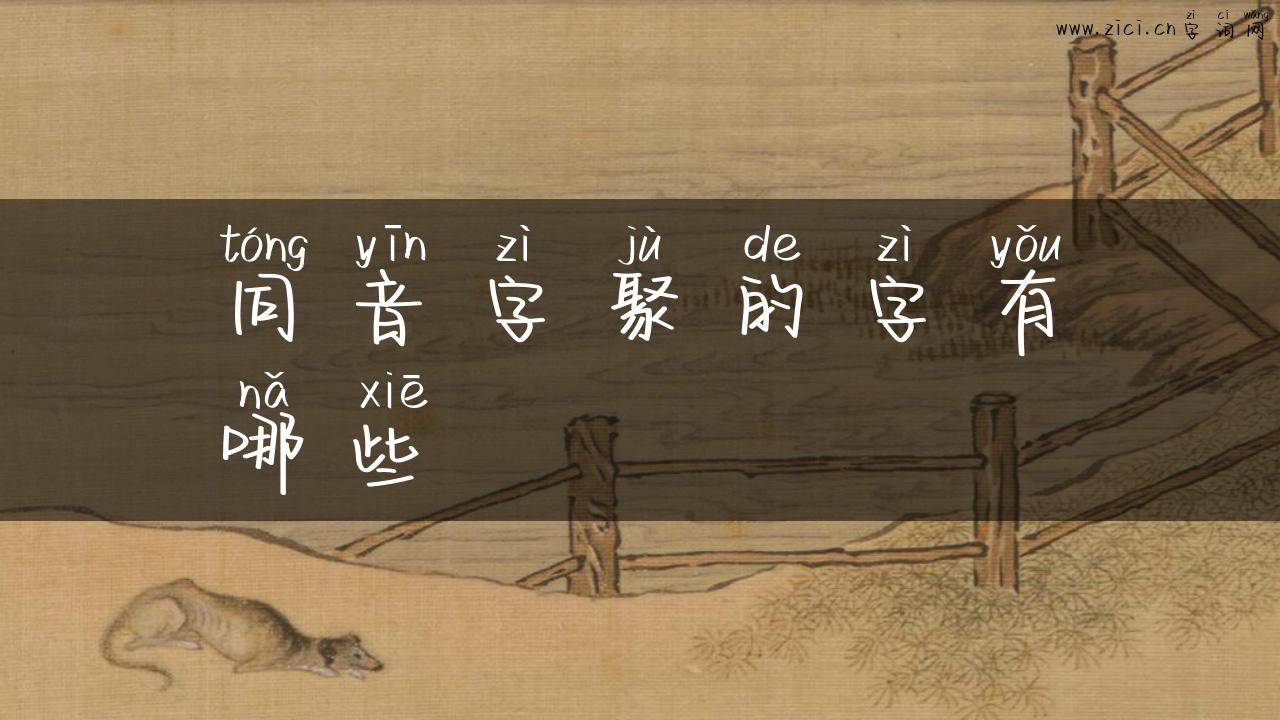 zì cí wǎng
www.zici.cn 字 词 网
tóng yīn zì jù de zì yǒu
同 音 字 聚 的 字 有
nǎ xiē
哪 些